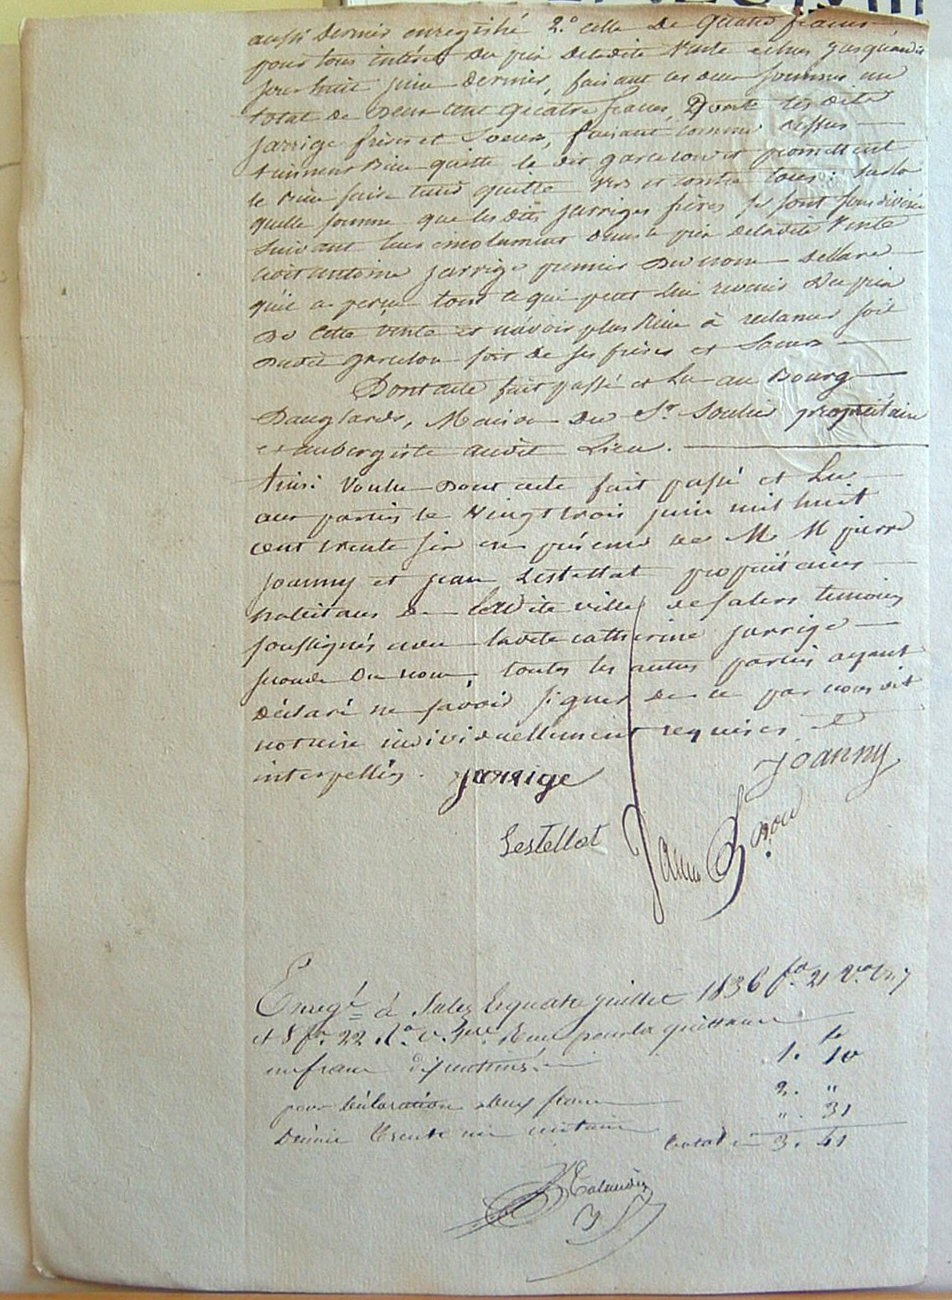 aussi dernier enregistré 2.° celle de quatre francs
pour tous intérêts du prix deladite vente echus jusqu'audit
jour huit juin dernier, faisant les deux sommes un
total de deux cent quatre francs, Dont lesdits
jarrige frères et soeurs, faisant comme dessus
tiennent bien quitte le dit garcelon et promettent
le bien faire tenir quitte vers et contre tous. sur la
quelle somme que lesdits jarriges frères se sont sous divisée
suivant leurs emolument dans le prix deladite vente
ledit antoine jarrige premier du nom déclare
qu'il a perçu tout ce qui peut lui revenir du prix
de cette vente et n'avoir plus rien à reclamer soit
dudit garcelon soit de ses frères et soeurs
Dont acte fait passé et lu au Bourg
Danglards, Maison du Sr. Soulier propriétaire
et aubergiste audit Lieu.
Ainsi voulu dont acte fait passé et lu
aux parties le vingt trois juin mil huit
cent trente six en présence de M M pierre
Joanny et jean Lestellat propriétaires
habitans de ladite ville de salers temoins
soussignés avec ladite catherine jarrige
seconde du nom, toutes les autres parties ayant
déclaré ne savoir signer de ce par nous dit
notaire individuellement requises et
interpellés. jarrige Joanny
Lestellat
Enregé. à Salers le quatre juillet 1836 fo. 21 Vo. C. 7
et 8 fo. 22 Ro. c. 1ere. Reçu pour la quittance
un franc dix centimes. 1. 10
pour déclaration deux francs 2. "
Décime trente un centimes ". 31
total 3. 41